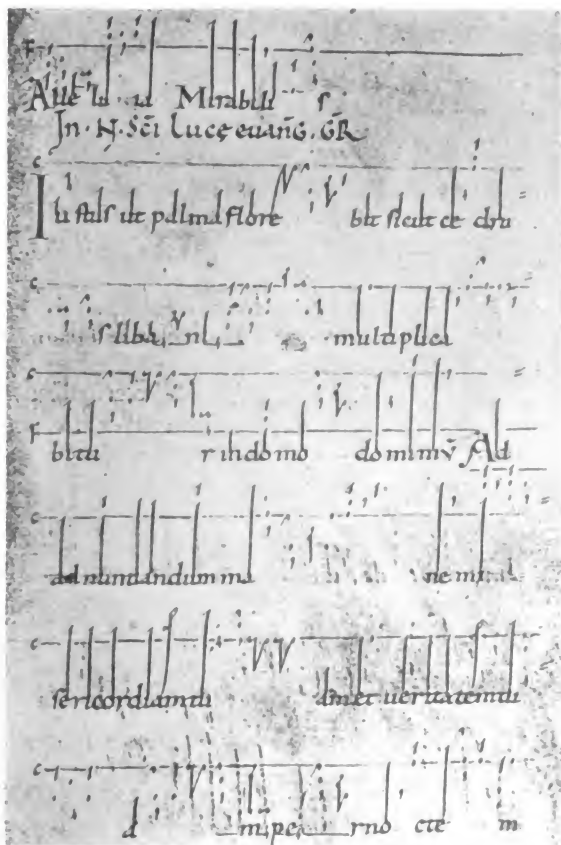 Alle lu ia Mirabili s
In · N · Sc̄i luce euanḡ . GR̄
Iu stus ut palma flore bit sicut ce dru
s liba ni multiplica
bitu r in do mo do mi ni V̄ Ad
ad nuntiandum ma ne mi
sericordiam tu am et ueritatem tu
a m pe r no cte m